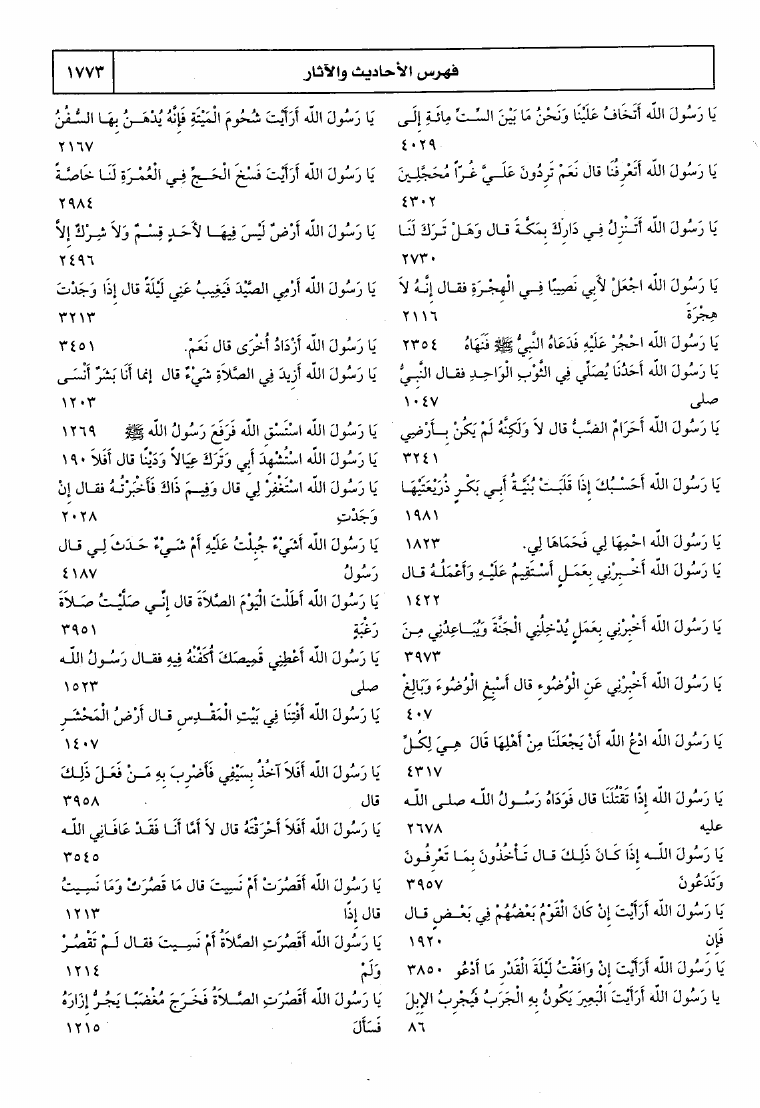 فهرس الأحاديث والآثار ١٧٧٣
يَا رَسُولَ اللَّه أَتَخَافُ عَلَيْنَا وَنَحْنُ مَا بَيْنَ السِّتِّ مِائَةِ إِلَى
٤٠٢٩
يَا رَسُولَ اللَّه أَتَعْرِفُنَا قال نَعَمْ تَرِدُونَ عَلَيَّ غُرًّا مُحَجَّلِينَ
٤٣٠٢
يَا رَسُولَ اللَّه أَتَنْزِلُ فِي دَارِكَ بِمَكَّةَ قال وَهَلْ تَرَكَ لَنَا
٢٧٣٠
يَا رَسُولَ اللَّه اجْعَلْ لأَبِي نَصِيبًا فِي الْهِجْرَةِ فقال إِنَّهُ لاَ
هِجْرَةَ ٢١١٦
يَا رَسُولَ اللَّه احْجُرْ عَلَيْهِ فَدَعَاهُ النَّبِيُّ ﷺ فَنَهَاهُ ٢٣٥٤
يَا رَسُولَ اللَّه أَحَدُنَا يُصَلِّي فِي الثَّوْبِ الْوَاحِدِ فقال النَّبِيُّ
صلى ١٠٤٧
يَا رَسُولَ اللَّه أَحَرَامٌ الضَّبُّ قال لاَ وَلَكِنَّهُ لَمْ يَكُنْ بِأَرْضِي
٣٢٤١
يَا رَسُولَ اللَّه أَحَسْبُكَ إِذَا قَلَبَتْ بُنَيَّةُ أَبِي بَكْرٍ ذُرَيْعَتَيْهَا
١٩٨١
يَا رَسُولَ اللَّه احْمِهَا لِي فَحَمَاهَا لِي. ١٨٢٣
يَا رَسُولَ اللَّه أَخْبِرْنِي بِعَمَلٍ أَسْتَقِيمُ عَلَيْهِ وَأَعْمَلُهُ قال
١٤٢٢
يَا رَسُولَ اللَّه أَخْبِرْنِي بِعَمَلٍ يُدْخِلُنِي الْجَنَّةَ وَيُبَاعِدُنِي مِنَ
٣٩٧٣
يَا رَسُولَ اللَّه أَخْبِرْنِي عَنِ الْوُضُوءِ قال أَسْبِغِ الْوُضُوءَ وَبَالِغْ
٤٠٧
يَا رَسُولَ اللَّه ادْعُ اللَّه أَنْ يَجْعَلَنَا مِنْ أَهْلِهَا قَالَ هِيَ لِكُلِّ
٤٣١٧
يَا رَسُولَ اللَّه إِذًا تَقْتُلَنَا قال فَوَدَاهُ رَسُولُ اللَّه صلى اللَّه
عليه ٢٦٧٨
يَا رَسُولَ اللَّه إِذَا كَانَ ذَلِكَ قال تَأْخُذُونَ بِمَا تَعْرِفُونَ
وَتَدَعُونَ ٣٩٥٧
يَا رَسُولَ اللَّه أَرَأَيْتَ إِنْ كَانَ الْقَوْمُ بَعْضُهُمْ فِي بَعْضٍ قال
فَإِن ١٩٢٠
يَا رَسُولَ اللَّه أَرَأَيْتَ إِنْ وَافَقْتُ لَيْلَةَ الْقَدْرِ مَا أَدْعُو ٣٨٥٠
يا رَسُولَ اللَّه أَرَأَيْتَ الْبَعِيرَ يَكُونُ بِهِ الْجَرَبُ فَيُجْرِبُ الإِبِلَ
٨٦
يَا رَسُولَ اللَّه أَرَأَيْتَ شُحُومَ الْمَيْتَةِ فَإِنَّهُ يُدْهَنُ بِهَا السُّفُنُ
٢١٦٧
يَا رَسُولَ اللَّه أَرَأَيْتَ فَسْخَ الْحَجِّ فِي الْعُمْرَةِ لَنَا خَاصَّةً
٢٩٨٤
يَا رَسُولَ اللَّه أَرْضٌ لَيْسَ فِيهَا لأَحَدٍ قِسْمٌ وَلاَ شِرْكٌ إِلاَّ
٢٤٩٦
يَا رَسُولَ اللَّه أَرْمِي الصَّيْدَ فَيَغِيبُ عَنِي لَيْلَةً قال إِذَا وَجَدْتَ
٣٢١٣
يَا رَسُولَ اللَّه أَزْدَادُ أُخْرَى قال نَعَمْ. ٣٤٥١
يَا رَسُولَ اللَّه أَزِيدَ فِي الصَّلاَةِ شَيْءٌ قال إنما أَنَا بَشَرٌ أَنْسَى
١٢٠٣
يَا رَسُولَ اللَّه اسْتَسْقِ اللَّه فَرَفَعَ رَسُولُ اللَّه ﷺ ١٢٦٩
يَا رَسُولَ اللَّه اسْتُشْهِدَ أَبِي وَتَرَكَ عِيَالاً وَدَيْنًا قال أَفَلاَ ١٩٠
يَا رَسُولَ اللَّه اسْتَغْفِرْ لِي قال وَفِيمَ ذَاكَ فَأَخْبَرْتُهُ فقال إِنْ
وَجَدْتِ ٢٠٢٨
يَا رَسُولَ اللَّه أَشَيْءٌ جُبِلْتُ عَلَيْهِ أَمْ شَيْءٌ حَدَثَ لِي قال
رَسُولُ ٤١٨٧
يَا رَسُولَ اللَّه أَطَلْتَ الْيَوْمَ الصَّلاَةَ قال إِنِّي صَلَّيْتُ صَلاَةَ
رَغْبَةٍ ٣٩٥١
يَا رَسُولَ اللَّه أَعْطِنِي قَمِيصَكَ أُكَفِّنْهُ فِيهِ فقال رَسُولُ اللَّه
صلى ١٥٢٣
يَا رَسُولَ اللَّه أَفْتِنَا فِي بَيْتِ الْمَقْدِسِ قال أَرْضُ الْمَحْشَرِ
١٤٠٧
يَا رَسُولَ اللَّه أَفَلاَ آخُذُ بِسَيْفِي فَأَضْرِبَ بِهِ مَنْ فَعَلَ ذَلِكَ
قال ٣٩٥٨
يَا رَسُولَ اللَّه أَفَلاَ أَحْرَقْتَهُ قال لاَ أَمَّا أَنَا فَقَدْ عَافَانِي اللَّه
٣٥٤٥
يَا رَسُولَ اللَّه أَقَصُرَتْ أَمْ نَسِيتَ قال مَا قَصُرَتْ وَمَا نَسِيتُ
قال إِذًا ١٢١٣
يَا رَسُولَ اللَّه أَقَصُرَتِ الصَّلاَةُ أَمْ نَسِيتَ فقال لَمْ تَقْصُرْ
وَلَمْ ١٢١٤
يَا رَسُولَ اللَّه أَقَصُرَتِ الصَّلاَةُ فَخَرَجَ مُغْضَبًا يَجُرُّ إِزَارَهُ
فَسَأَلَ ١٢١٥